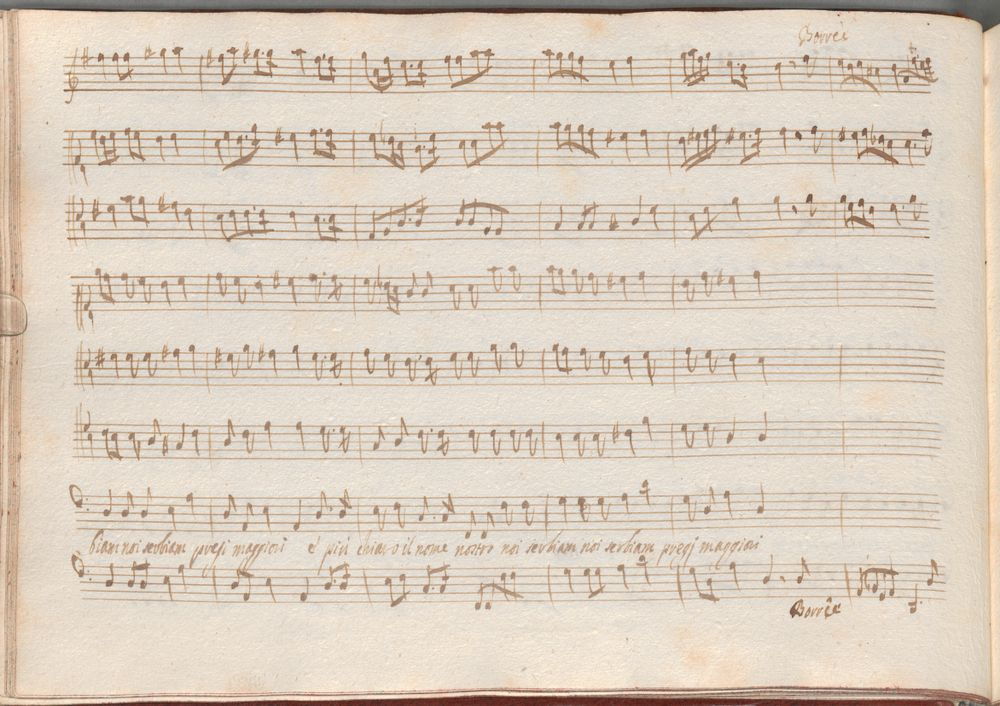 Borrèe
biam noi serbiam pregi maggiori è più chiaro il nome nostro noi serbiam noi serbiam pregj maggiori
Borrèe